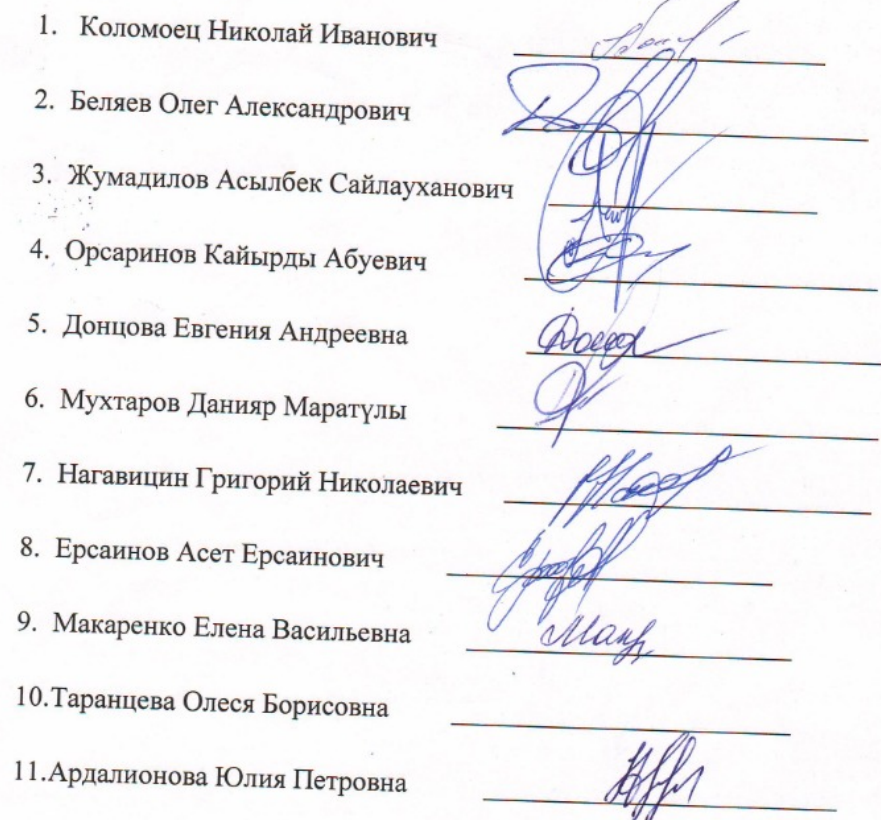 1. Коломоец Николай Иванович
2. Беляев Олег Александрович
3. Жумадилов Асылбек Сайлауханович
4. Орсаринов Кайырды Абуевич
5. Донцова Евгения Андреевна
6. Мухтаров Данияр Маратұлы
7. Нагавицин Григорий Николаевич
8. Ерсаинов Асет Ерсаинович
9. Макаренко Елена Васильевна
10.Таранцева Олеся Борисовна
11.Ардалионова Юлия Петровна